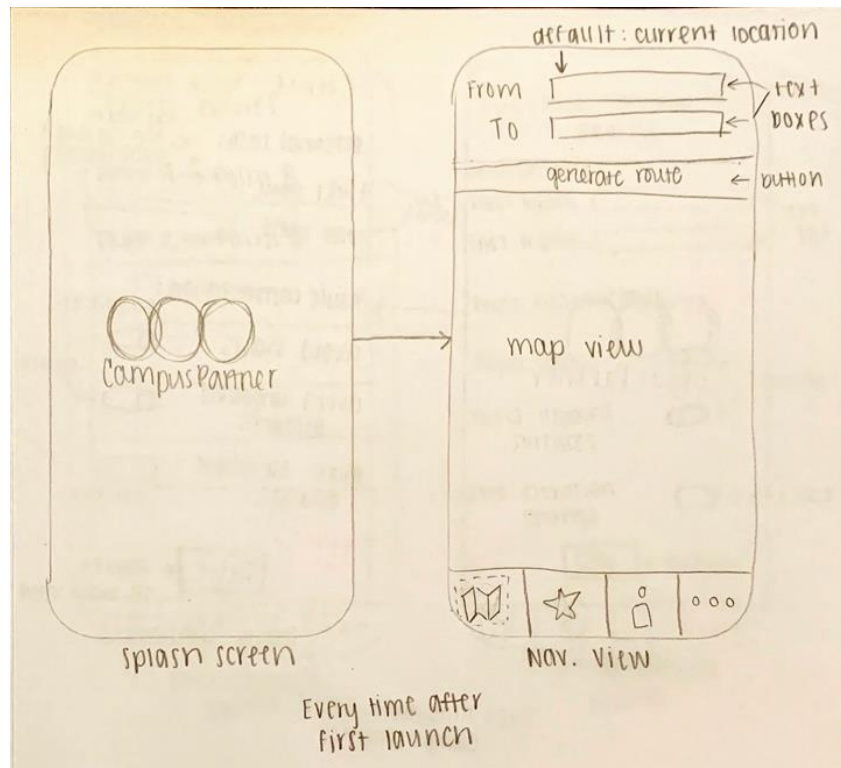 default: current location
From
To
text
boxes
generate route
button
map view
CampusPartner
splash screen
Nav. View
Every time after
first launch